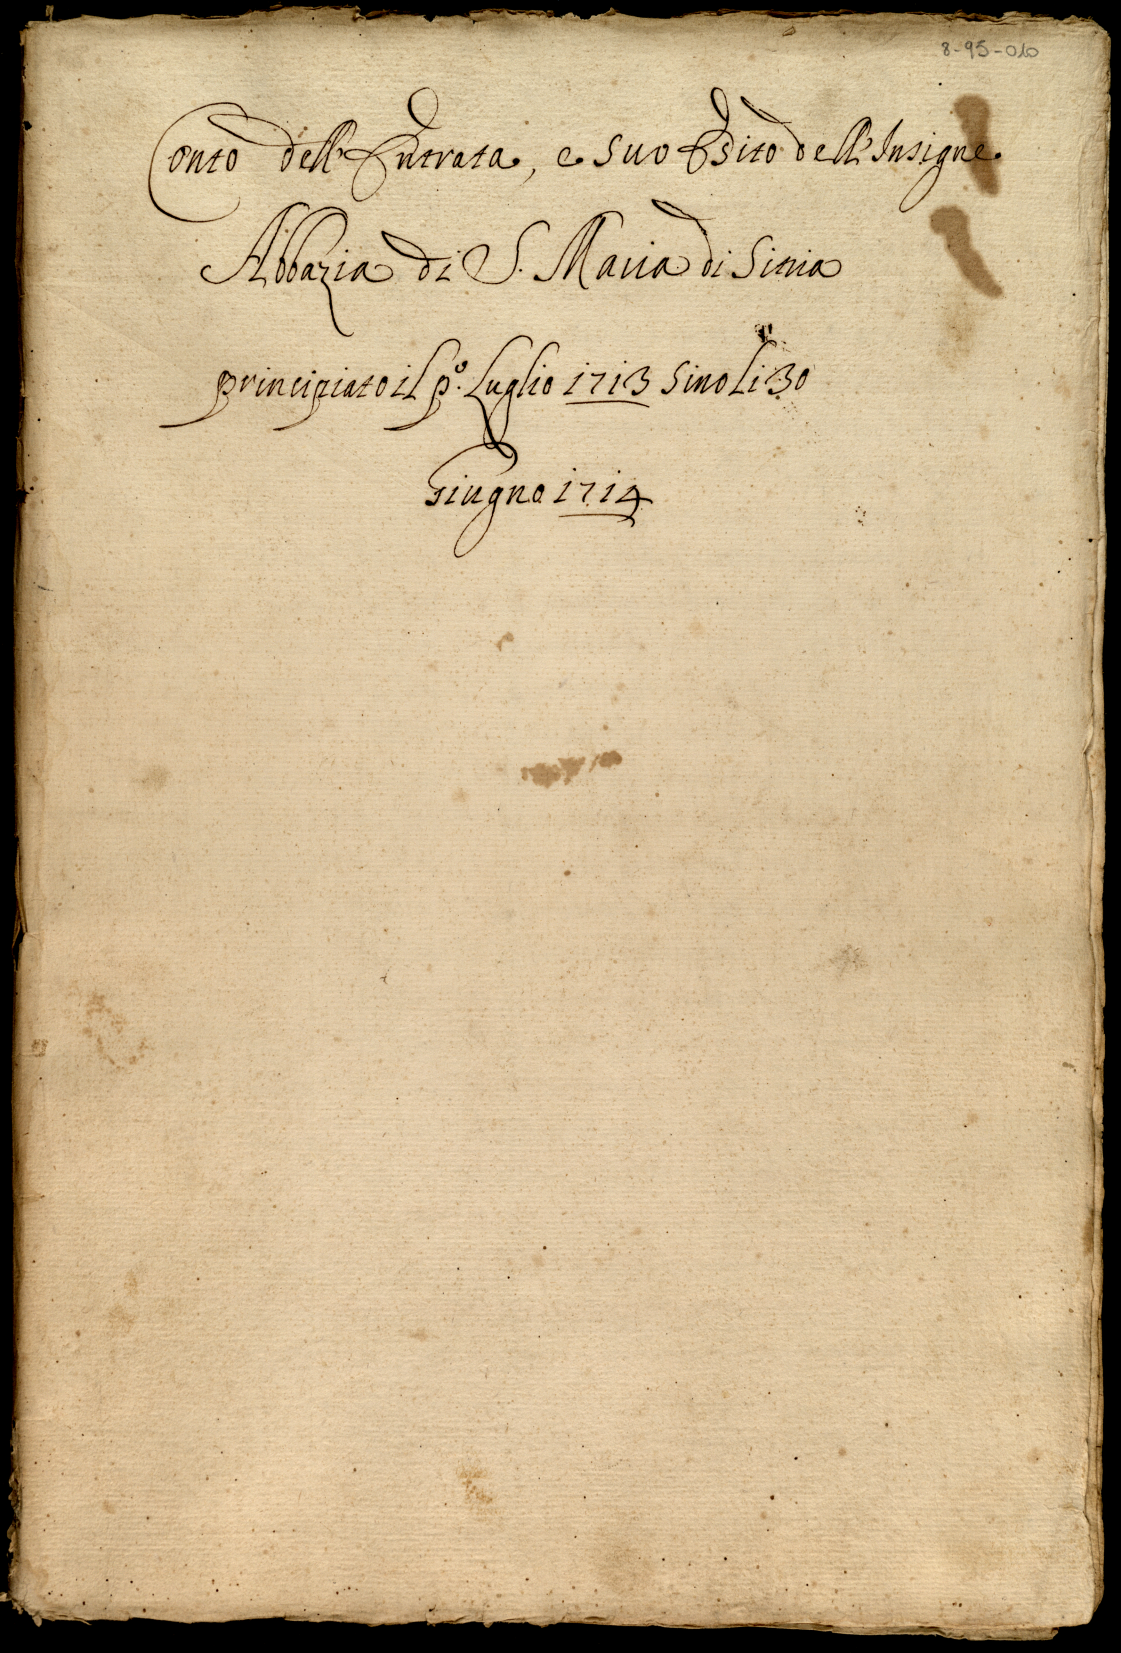 8-95-010
Conto dell'Entrata, e suo Esito dell'Insigne
Abbazia di S. Maria di Sitria
principiato il p.º Luglio 1713 sino li 30
Giugno 1714